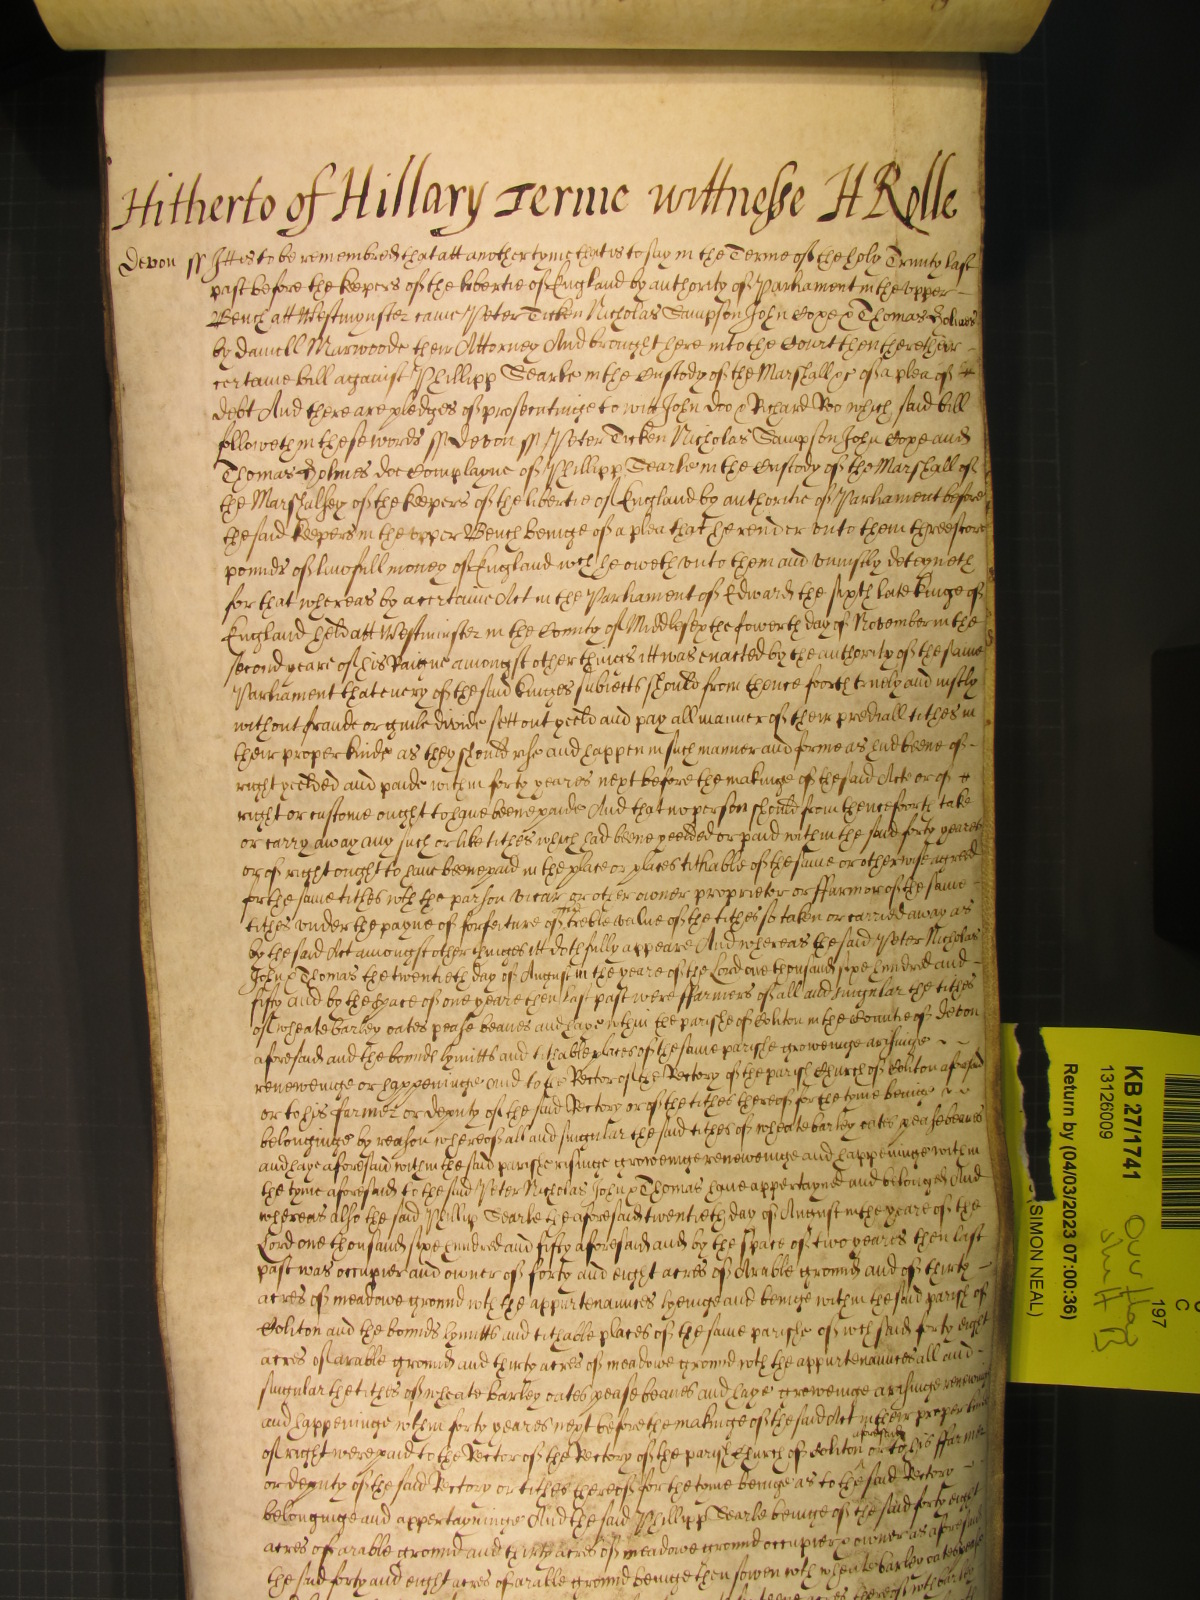 Hitherto of Hillary Terme wittnesse H Rolle
Devon ss Itt is to be remembred that att another tyme that is to say in the Terme of the holy Trinity last
past before the keepers of the libertie of England by authority of Parliament in the upper
Bench att Westmynster came Peter Ticken Nicholas Sampson John Cope & Thomas Holmes
by Daniell Marwoode their Attorney And brought here into the Court then there their
certaine bill against Phillipp Searle in the Custody of the Marshall &c of a plea of
debt And there are pledges of prosecutinge to witt John Doo & Richard Roo which said bill
followeth in these words ss Devon ss Peter Ticken Nicholas Sampson John Cope and
Thomas Holmes doe Complayne of Phillipp Searle in the Custody of the Marshall of
the Marshalsey of the keepers of the libertie of England by authoritie of Parliament before
the said keepers in the upper Bench beinge of a plea that he render unto them threescore
pounds of lawfull money of England wch he oweth unto them and uniustly deteyneth
for that whereas by a certaine Act in the Parliament of Edward the sixth late kinge of
England held att Westminster in the County of Middlesex the fowerth day of November in the
second yeare of his Raigne amongst other things itt was enacted by the authority of the same
Parliament that every of the said kinges subiects should from thence foorth truely and iustly
without fraude or guile divide sett out yeeld and pay all manner of their prediall tithes in
their proper kinde as they should rise and happen in such manner and forme as had beene of
right yeelded and paide within forty yeares next before the makinge of the said Acte or of
right or custome ought to have beene paide And that no person should from thencefoorth take
or carry away any such or like tithes which had beene yeelded or paid within the said forty yeares
or of right ought to have beene paid in the place or places tithable of the same or otherwise agreed
for the same tithes wth the parson vicar or other owner proprietor or ffarmor of the same
tithes under the payne of forfeiture of the treble value of the tithes so taken or carried away as
by the said Act amongst other thinges itt doth fully appeare And whereas the said Peter Nicholas
John & Thomas the twentieth day of August in the yeare of the Lord one thousand sixe hundred and
fifty and by the space of one yeare then last past were ffarmers of all and singular the tithes
of wheate barley oates pease beanes and haye within the parishe of Coliton in the Countie of Devon
aforesaid and the bounds lymitts and tithable places of the same parishe groweinge arisinge
reneweinge or happeninge And to the Rector of the Rectory of the parish Church of Coliton aforesaid
or to his farmer or deputy of the said Rectory or of the tithes thereof for the tyme beinge
belonginge by reason whereof all and singular the said tithes of wheate barley oates pease beanes
and haye aforesaid within the said parishe risinge groweinge reneweinge and happeninge within
the tyme aforesaid to the said Peter Nicholas John & Thomas have appertayned and belonged And
whereas also the said Phillip Searle the aforesaid twentieth day of August in the yeare of the
Lord one thousand sixe hundred and fifty aforesaid and by the space of two yeares then last
past was occupier and owner of forty and eight acres of arable ground and of thirty
acres of meadowe ground wth the appurtenaunces lyeinge and beinge within the said parish of
Coliton and the bounds lymitts and tithable places of the same parishe of wch said forty eight
acres of arable ground and thirty acres of meadowe ground wth the appurtenaunces all and
singular the tithes of wheate barley oates pease beanes and haye groweinge arisinge reneweinge
and happeninge within forty yeares next before the makinge of the said Act in their proper kinde
of right were paid to the Rector of the Rectory of the parish Church of Coliton aforesaid or to his ffarmer
or deputy of the said Rectory or tithes thereof for the tyme beinge as to the said Rectory
belonginge and appertayninge And the said Phillipp Searle beinge of the said forty eight
acres of arable ground and thirty acres of meadowe ground occupier & owner as aforesaid
the said forty and eight acres of arable ground beinge then sowen wth wheate barley oates pease
KB 27/1741
13126009
Return by (04/03/2023 07:00:36)
(SIMON NEAL)
197
C